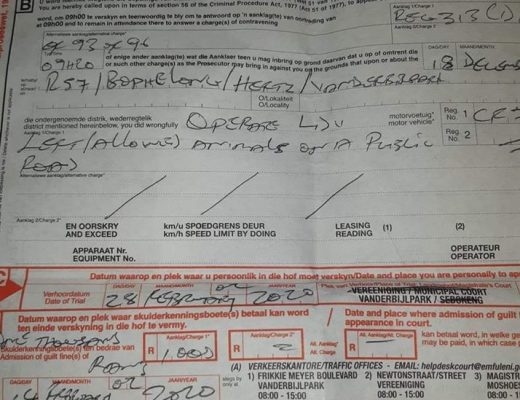 You are hereby called upon in terms of section 56 of the Criminal Procedure Act, 1977 (Act 51 of 1977), to appear
word, om 09h00 te verskyn en teenwoordig te bly om te antwoord op 'n aanklag(te) van oortreding van
at 09h00 and to remain in attendance there to answer a charge(s) of contravening
B
Aanklag 1/Charge 1
REG 313 (1)
Alternatiewe aanklag/alternative charge*
93 of 96
of enige ander aanklag(te) wat die Aanklaer teen u mag inbring op grond daarvan dat u op of omtrent die
or such other charge(s) as the Prosecutor may bring in against you on the grounds that upon or about the
09H20
DAG/DAY
18
MAAND/MONTH
R57/BOPHELONG/HERTZ/VANDERBIJLPARK
O/Lokaliteit
O/Locality
die ondergenoemde distrik, wederregtelik
district mentioned hereinbelow, you did wrongfully
OPERATE
motorvoertuig*
motor vehicle*
Reg. No. 1
Reg. No. 2
Aanklag 1/Charge 1
LEFT (ALLOWED) ANIMALS ON A PUBLIC
ROAD
Alternatiewe aanklag/alternative charge*
Aanklag 2/Charge 2*
EN OORSKRY
AND EXCEED
km/u SPOEDGRENS DEUR
km/h SPEED LIMIT BY DOING
LEASING
READING
(1)
(2)
APPARAAT Nr.
EQUIPMENT No.
OPERATEUR
OPERATOR
C
Datum waarop en plek waar u persoonlik in die hof moet verskyn/Date and place you are personally to app
Verhoordatum
Date of Trial
DAG/DAY
28
MAAND/MONTH
FEBRUARY 02
JAAR/YEAR
2020
VEREENIGING MUNICIPAL COURT
VANDERBIJLPARK / SEBOKENG
Datum waarop en plek waar skulderkenningsboete(s) betaal kan word
ten einde verskyning in die hof te vermy.
/ Date and place where admission of guilt
appearance in court.
Skulderkenningsboete(s) ten bedrae van
Admission of guilt fine(s) of
Rands
Aanklag 1/Charge 1
R
1.000
Aanklag 2/Charge 2
R
R
kan betaal word, in welke ge
may be paid, in which case
DAG/DAY
MAAND/MONTH
02
JAAR/YEAR
2020
(A) VERKEERSKANTORE/TRAFFIC OFFICES - EMAIL: helpdeskcourt@emfuleni.g
1) FRIKKIE MEYER BOULEVARD
VANDERBIJLPARK
08:00 - 15:00
2) NEWTONSTRAAT/STREET
VEREENIGING
08:00 - 15:00
3) MAGISTR
MOSHOES
08:00 - 15